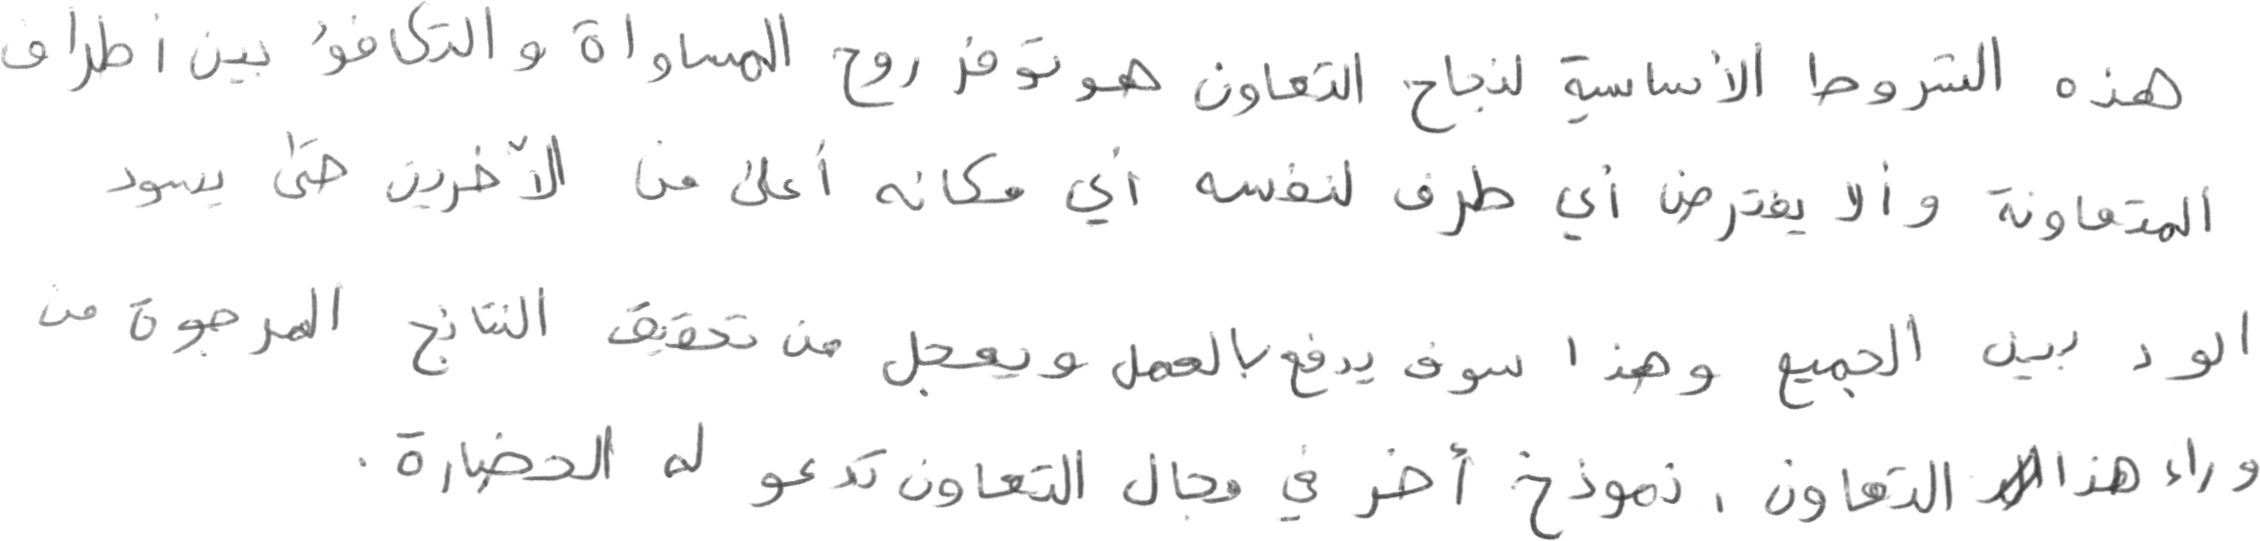 هذه الشروط الأساسية لنجاح التعاون هو توفر روح المساواة والتكافؤ بين أطراف
المتعاونة وألا يفترض أي طرف لنفسه أي مكانه أعلى من الآخرين حتى يسود
الود بين الجميع وهذا سوف يدفع بالعمل ويعجل من تحقيق النتائج المرجوة من
وراء هذا التعاون ، نموذج أخر في مجال التعاون تدعو له الحضارة .